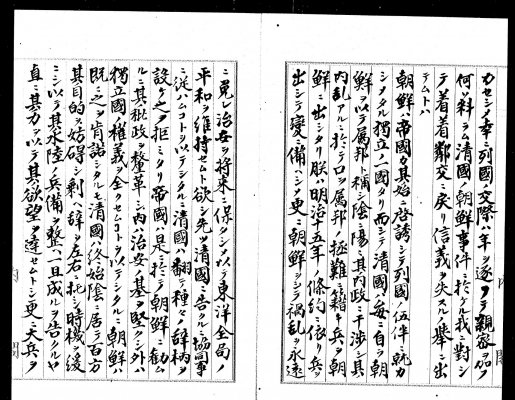 カセシメ幸ニ列國ノ交際ハ年ヲ逐フテ親密ヲ加フ
何ソ料ラム清國ノ朝鮮事件ニ於ケル我ニ對シ
テ着着鄰交ニ戻リ信義ヲ失スルノ擧ニ出
テムトハ
朝鮮ハ帝國カ其ノ始ニ啓誘シテ列國ノ伍伴ニ就カ
シメタル獨立ノ一國タリ而シテ清國ハ毎ニ自ラ朝
鮮ヲ以テ屬邦ト稱シ陰ニ陽ニ其ノ内政ニ干渉シ其ノ
内乱アルニ於テ口ヲ属邦ノ拯難ニ籍キ兵ヲ朝
鮮ニ出シタリ朕ハ明治十五年ノ條約ニ依リ兵ヲ
出シテ變ニ備ヘシメ更ニ朝鮮ヲシテ禍乱ヲ永遠
ニ免レ治安ヲ将来ニ保タシメ以テ東洋全局ノ
平和ヲ維持セムト欲シ先ツ清國ニ告クルニ協同事
ニ従ハムコトヲ以テシタルニ清國ハ翻テ種々ノ辞柄ヲ
設ケ之ヲ拒ミタリ帝國ハ是ニ於テ朝鮮ニ勧ム
ルニ其ノ秕政ヲ釐革シ内ハ治安ノ基ヲ堅クシ外ハ
獨立國ノ權義ヲ全クセムコトヲ以テシタルニ朝鮮ハ
既ニ之ヲ肯諾シタルモ清國ハ終始陰ニ居テ百方
其ノ目的ヲ妨碍シ剰ヘ辞ヲ左右ニ托シ時機ヲ緩
ニシ以テ其ノ水陸ノ兵備ヲ整ヘ一旦成ルヲ告クルヤ
直ニ其ノ力ヲ以テ其ノ欲望ヲ達セムトシ更ニ大兵ヲ